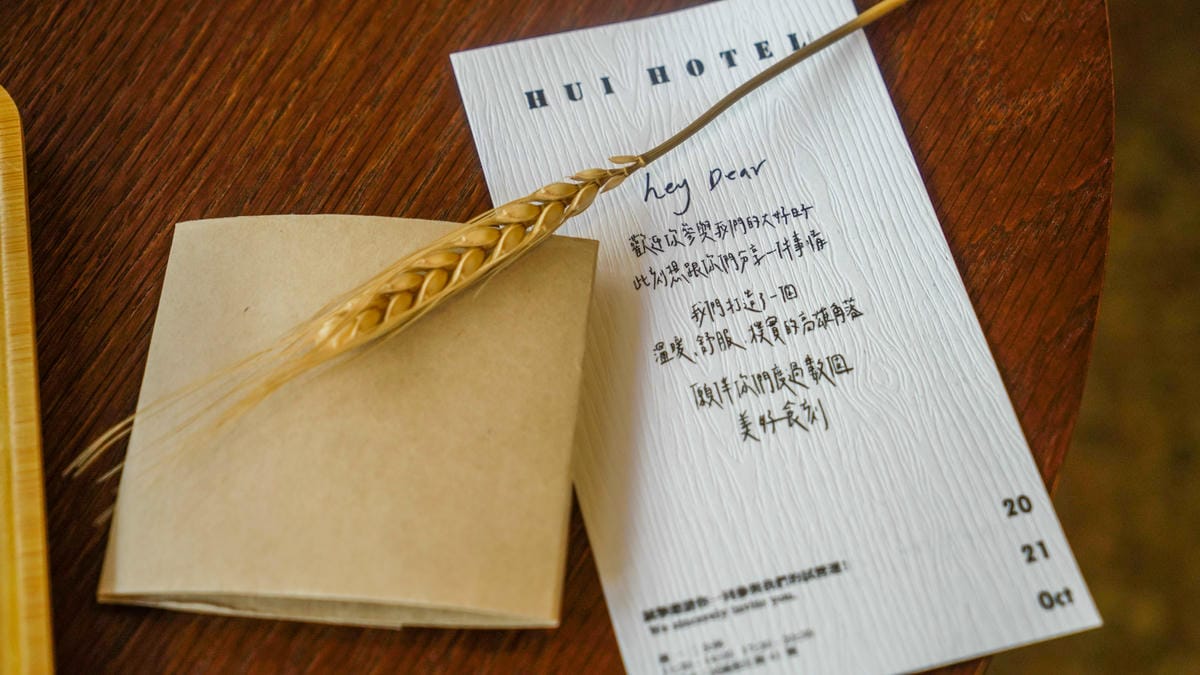 HUI HOTEL
hey Dear
歡迎你參與我們的大好時
此刻想跟你們分享一件事情
我們打造了一個
溫暖、舒服、樸實的高雄角落
願伴你們度過數個
美好食刻
20
21
Oct
誠摯邀請你一同參與我們的試營運！
We sincerely invite you.